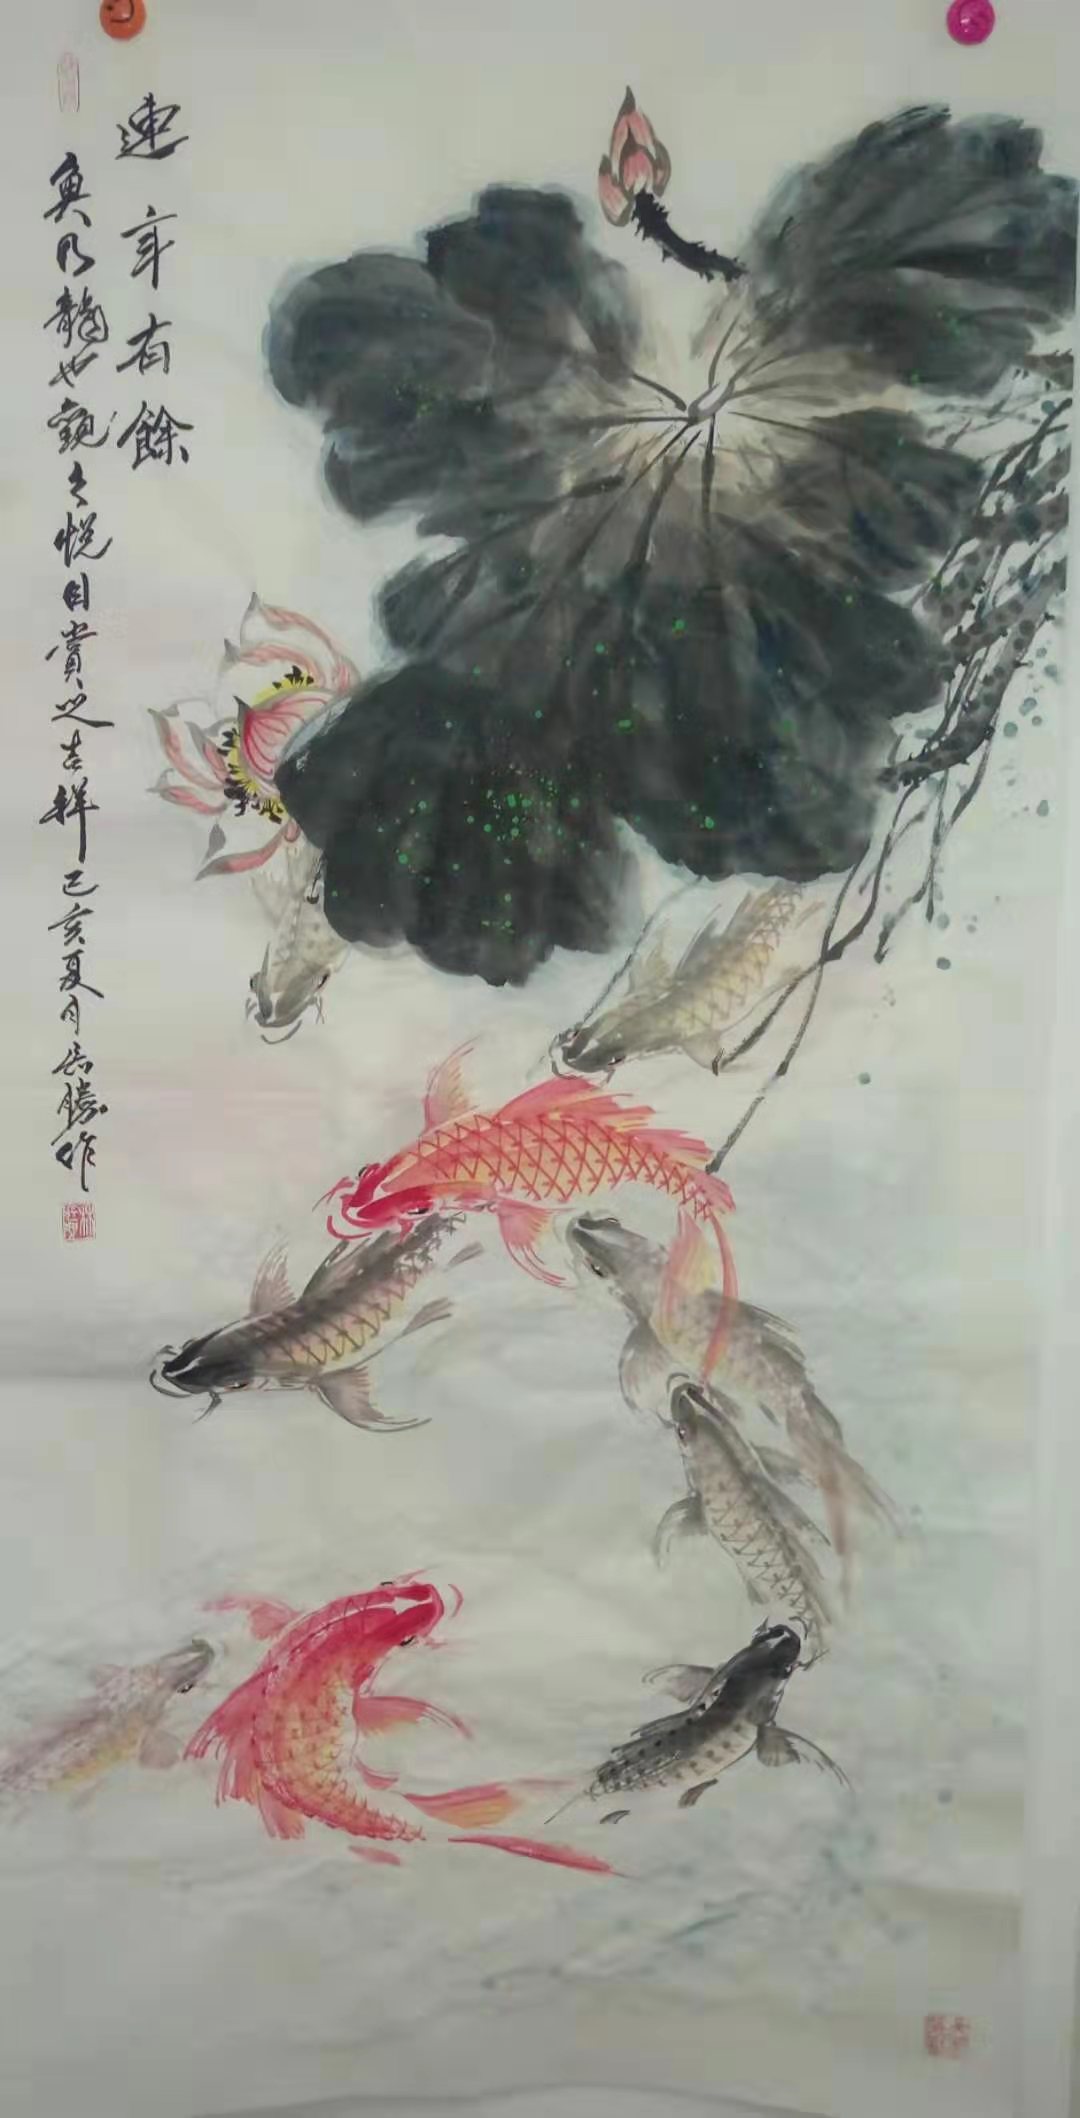 連年有餘
魚乃龍也觀之悦目賞之吉祥己亥夏月長勝作